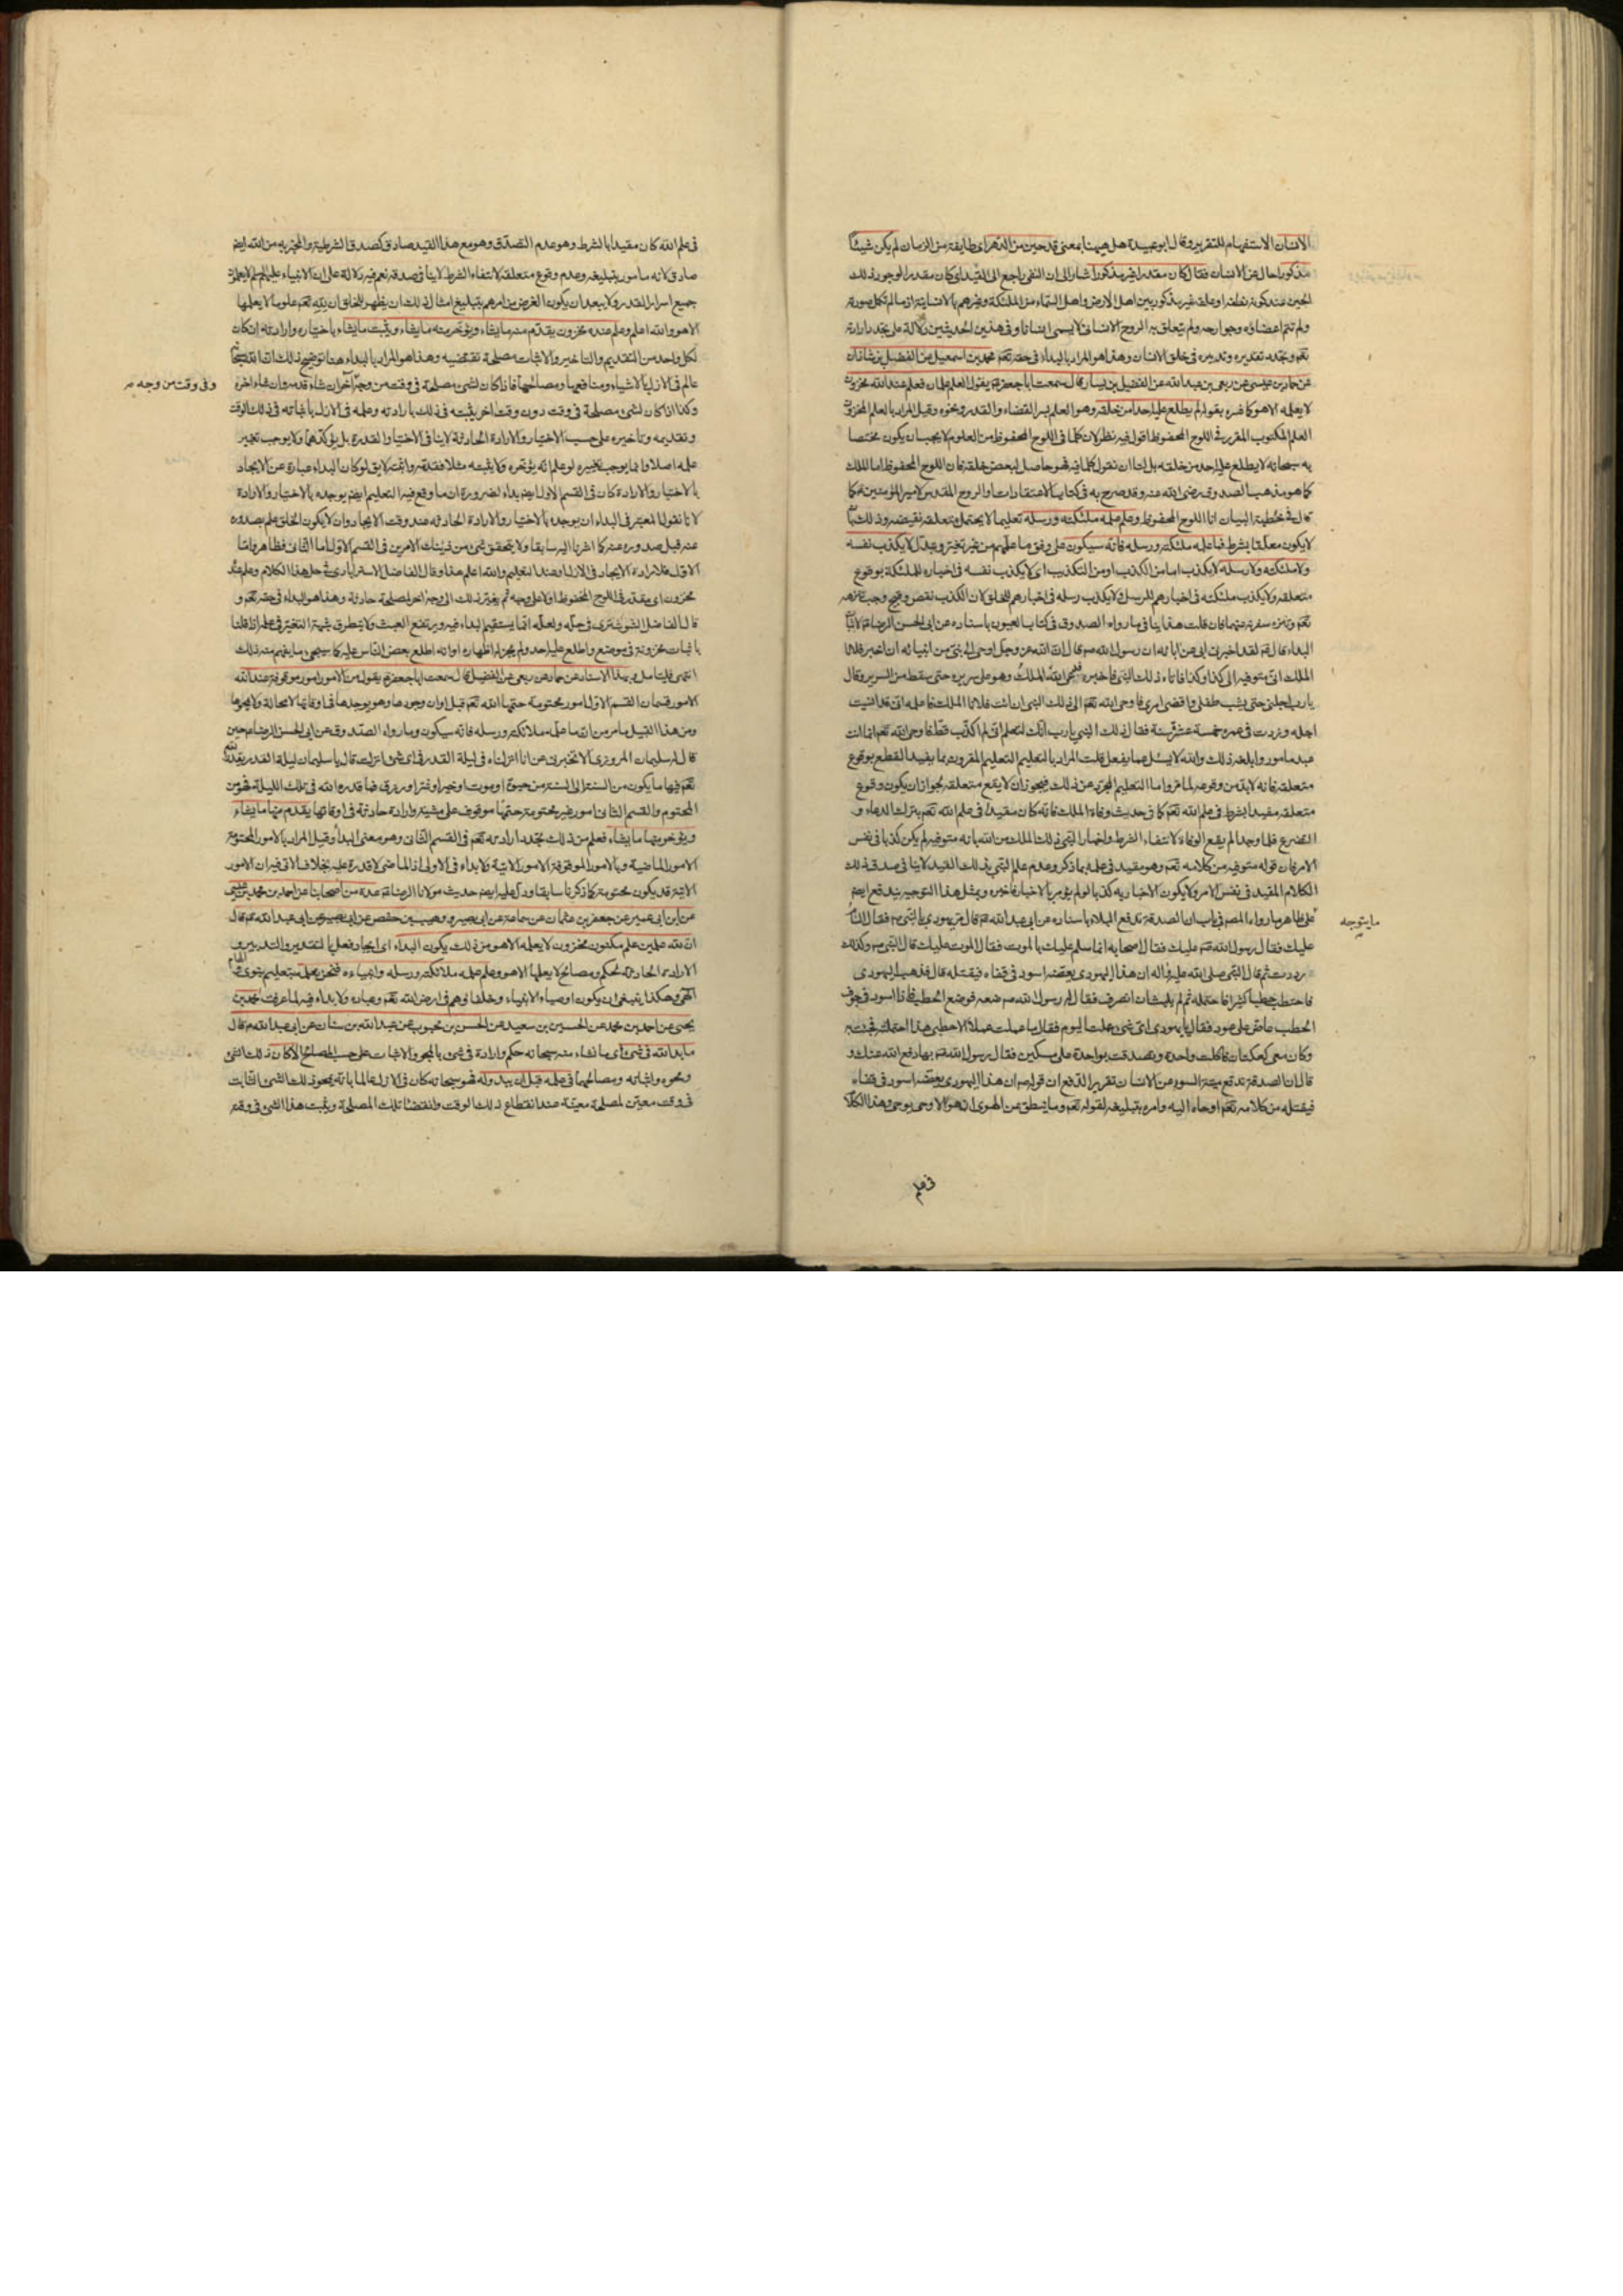 الانسان الاستفهام للتقرير وقال ابو عبيدة هل هيهنا بمعنى قد حين من الدهر اى طايفة من الزمان لم يكن شيئاً
مذكورا حال عن الانسان فقال كان مقدرا غير مذكور اشار الى ان النفى راجع الى القيد اى كان مقدر الوجود وذلك
الحين عند كونه نطفة او علقة غير مذكور بين اهل الارض واهل السماء من الملئكة وغيرهم بالانسانية اذ ما لم تكمل صورته
ولم تتم اعضاؤه وجوارحه ولم يتعلق به الروح الانسانى لا يسمى انسانا وفى هذين الحديثين دلالة على تجدد ارادته
تعم وتجدد تقديره وتدبيره فى خلق الانسان وهذا هو المراد بالبداء فى حقه تعم محمد بن اسمعيل عن الفضل بن شاذان
عن حماد بن عيسى عن ربعى بن عبد الله عن الفضيل بن يسار قال سمعت ابا جعفر ع يقول العلم علمان فعلم عند الله مخزون
لا يعلمه الا هو كما فسره بقوله لم يطلع عليه احدا من خلقه وهو العلم بسر القضاء والقدر ونحوه وقيل المراد بالعلم المخزون
العلم المكتوب المقرر فى اللوح المحفوظ اقول فيه نظر لان كلما فى اللوح المحفوظ من العلوم لا يجب ان يكون مختصا
به سبحانه لا يطلع عليه احد من خلقه بل لنا ان نقول كلما فيه فهو حاصل لبعض خلقه فان اللوح المحفوظ اما الملك
كما هو مذهب الصدوق رضى الله عنه وقد صرح به فى كتاب الاعتقادات او الروح المقدس لامير المؤمنين ع كما
قال فى خطبة البيان انا اللوح المحفوظ وعلم علمه ملئكته ورسله تعليما لا يحتمل متعلقه نقيضه وذلك بان
لا يكون معلقا بشرط فما علمه ملئكته ورسله فانه سيكون على وفق ما علمهم من غير تغير وتبدل لا يكذب نفسه
ولا ملئكته ولا رسله لا يكذب اما من الكذب او من التكذيب اى لا يكذب نفسه فى اخباره للملئكة بوقوع
متعلقه ولا يكذب ملئكته فى اخبارهم للرسل ولا يكذب رسله فى اخبارهم للخلق لان الكذب نقص وقبيح وجب تنزهه
تعم وتنزه سفرته عنهما فان قلت هذا ينافى ما رواه الصدوق فى كتاب العيون باسناده عن ابى الحسن الرضا ع
البداء قال ع لقد اخبرنى ابى عن ابائه ان رسول الله ص قال ان الله عز وجل اوحى الى نبى من انبيائه ان اخبر فلانا
الملك انى متوفيه الى كذا وكذا فاتاه ذلك النبى فاخبره فدعا الله الملك وهو على سريره حتى سقط من السرير وقال
يا رب اجلنى حتى يشب طفلى واقضى امرى فاوحى الله تعم الى ذلك النبى ان ائت فلانا الملك فاعلمه انى قد انسيت
اجله وزدت فى عمره خمسة عشر سنة فقال ذلك النبى يا رب انك لتعلم انى لم اكذب قط فاوحى الله تعم انما انت
عبد مامور وابلغه ذلك والله لا يسئل عما يفعل قلت المراد بالتعليم التعليم المقرون بما يفيد القطع بوقوع
متعلقه فانه لا بد من وقوعه لما مر واما التعليم المجرد عن ذلك فيجوز ان لا يقع متعلقه لجواز ان يكون وقوع
متعلقه مقيدا بشرط فى علم الله تعم كما فى حديث وفاة الملك فانه كان مقيدا فى علم الله تعم بترك الدعاء و
التضرع فلما وجدا لم يقع الوفاة لانتفاء الشرط واخبار النبى ذلك الملك من الله بانه متوفيه لم يكن كذبا فى نفس
الامر فان قوله متوفيه من كلامه تعم وهو مقيد فى علمه بما ذكر وعدم علم النبى بذلك القيد لا ينافى صدق ذلك
الكلام المقيد فى نفس الامر ولا يكون الاخبار به كذبا لو لم يؤمر بالاخبار فاخبره وبمثل هذا التوجيه يندفع ايضا
ما يتوجه
على ظاهر ما رواه المصم فى باب ان الصدقة تدفع البلاء باسناده عن ابى عبد الله ع قال مر يهودى بالنبى ص فقال السام
عليك فقال رسول الله ص عليك فقال اصحابه انما سلم عليك بالموت فقال الموت عليك قال النبى ص وكذلك
رددت ثم قال النبى صلى الله عليه واله ان هذا اليهودى يعضه اسود فى قفاه فيقتله قال فذهب اليهودى
فاحتطب حطبا كثيرا فاحتمله ثم لم يلبث ان انصرف فقال له رسول الله ص ضعه فوضع الحطب فاذا اسود فى جوف
الحطب عاض على عود فقال يا يهودى اى شئ عملت اليوم فقال ما عملت عملا الا حطبى هذا احتملته فجئت به
وكان معى كعكتان فاكلت واحدة وتصدقت بواحدة على مسكين فقال رسول الله ص بها دفع الله عنك و
قال ان الصدقة تدفع ميتة السوء عن الانسان تقرير الدفع ان قوله ص ان هذا اليهودى يعضه اسود فى قفاه
فيقتله من كلامه تعم اوحاه اليه وامره بتبليغه لقوله تعم وما ينطق عن الهوى ان هو الا وحى يوحى وهذا الكلام
فى علم
فى علم الله كان مقيدا بالشرط وهو عدم التصدق وهو مع هذا القيد صادق كصدق الشرطية والمخبر به من الله ايضا
صادق لانه مامور بتبليغه وعدم وقوع متعلقه لانتفاء الشرط لا ينافى صدقه نعم فيه دلالة على ان الانبياء عليهم السلم لا يعلمون
جميع اسرار القدر ولا يبعد ان يكون الغرض من امرهم بتبليغ امثال ذلك ان يظهر للخلق ان لله تعم علوما لا يعلمها
الا هو والله اعلم وعلم عنده مخزون يقدم منه ما يشاء ويؤخر منه ما يشاء ويثبت ما يشاء باختياره وارادته ان كان
لكل واحد من التقديم والتاخير والاثبات مصلحة تقتضيه وهذا هو المراد بالبداء هنا توضيح ذلك ان الله سبحانه
عالم فى الازل بالاشياء ومنافعها ومصالحها فاذا كان لشئ مصلحة فى وقت من وجه اخر ان شاء قدمه وان شاء اخره
وفى وقت من وجه
وكذا اذا كان لشئ مصلحة فى وقت دون وقت اخر يثبته فى ذلك بارادته وعلمه فى الازل باثباته فى ذلك الوقت
وتقديمه وتاخيره على حسب الاختيار والارادة الحادثة لا ينافى الاختيار والقدرة بل يؤكدهما ولا يوجب تغيير
علمه اصلا وانما يوجب تغييره لو علم انه يؤخره ولا يثبته مثلا فقدمه واثبته لا يق لو كان البداء عبارة عن الايجاد
بالاختيار والارادة كان فى القسم الاول ايضا بداء لضرورة ان ما وقع فيه التعليم ايضا يوجده بالاختيار والارادة
لانا نقول المعتبر فى البداء ان يوجده بالاختيار والارادة الحادثة عند وقت الايجاد وان لا يكون للخلق علم بصدوره
عنه قبل صدوره عنه كما اشرنا اليه سابقا ولا يتحقق شئ من ذينك الامرين فى القسم الاول اما الثانى فظاهر واما
الاول فلارادة الايجاد فى الازل او عند التعليم والله اعلم هذا وقال الفاضل الاسترابادى فى حل هذا الكلام وعلم عنده
مخزون اى مقدر فى اللوح المحفوظ اولا على وجه ثم يغير ذلك الى وجه اخر لمصلحة حادثة وهذا هو البداء فى حقه تعم و
قال الفاضل الشوشترى فى حله ولعله انما يستقيم البداء فيه ويرتفع العبث ولا يتطرق شبهة التغير فى علمه اذا قلنا
باثبات مخزونة فى موضع واطلع عليه احد ولم يجز له اظهاره او انه اطلع بعض الناس عليه كما سيجئ ما يفهم منه ذلك
انتهى فليتامل وبهذا الاسناد عن حماد عن ربعى عن الفضيل قال سمعت ابا جعفر ع يقول من الامور امور موقوفة عند الله
الامور قسمان القسم الاول امور محتومة حتمها الله تعم قبل اوان وجودها وهو يوجدها فى اوقاتها لا محالة ولا يمحوها
ومن هذا القبيل ما مر من ان ما علمه ملائكته ورسله فانه سيكون وما رواه الصدوق عن ابى الحسن الرضا ع حين
قال له سليمان المروزى الا تخبرنى عن انا انزلناه فى ليلة القدر فى اى شئ انزلت قال يا سليمان ليلة القدر يقدر الله
تعم فيها ما يكون من السنة الى السنة من حيوة او موت او خير او شر او رزق فما قدره الله فى تلك الليلة فهو من
المحتوم والقسم الثانى امور غير محتومة حتمها موقوف على مشية وارادة حادثة فى اوقاتها يقدم منها ما يشاء
ويؤخر منها ما يشاء فعلم من ذلك تجدد ارادته تعم فى القسم الثانى وهو معنى البداء وقيل المراد بالامور المحتومة
الامور الماضية وبالامور الموقوفة الامور الاتية ولا بداء فى الاولى اذ الماضى لا قدرة عليه بخلاف الاتى فيه ان الامور
الاتية قد يكون محتومة كما ذكرنا سابقا ودل عليه ايضا حديث مولانا الرضا ع عدة من اصحابنا عن احمد بن محمد بن عيسى
عن ابن ابى عمير عن جعفر بن عثمان عن سماعة عن ابى بصير ووهيب بن حفص عن ابى بصير عن ابى عبد الله ع قال
ان لله علمين علم مكنون مخزون لا يعلمه الا هو من ذلك يكون البداء اى ايجاد فعل بالتقدير والتدبير و
الارادة الحادثة لحكم ومصالح لا يعلمها الا هو وعلم علمه ملائكته ورسله وانبياءه فنحن نعلمه بتعليم نبوى او الهام
الهى وهكذا ينبغى ان يكون اوصياء الانبياء وخلفاؤهم فى ارض الله تعم وعباده ولا بداء فيه لما عرفت محمد بن
يحيى عن احمد بن محمد عن الحسين بن سعيد عن الحسن بن محبوب عن عبد الله بن سنان عن ابى عبد الله ع قال
ما بدا لله فى شئ اى ما نشاء منه سبحانه حكم وارادة فى شئ بالمحو والاثبات على حسب المصالح الا كان ذلك الشئ
ومحوه واثباته ومصالحهما فى علمه قبل ان يبدو له فهو سبحانه كان فى الازل عالما بانه يمحو ذلك الشئ الثابت
فى وقت معين لمصلحة معينة عند انقطاع ذلك الوقت وانقضاء تلك المصلحة ويثبت هذا الشئ فى وقته